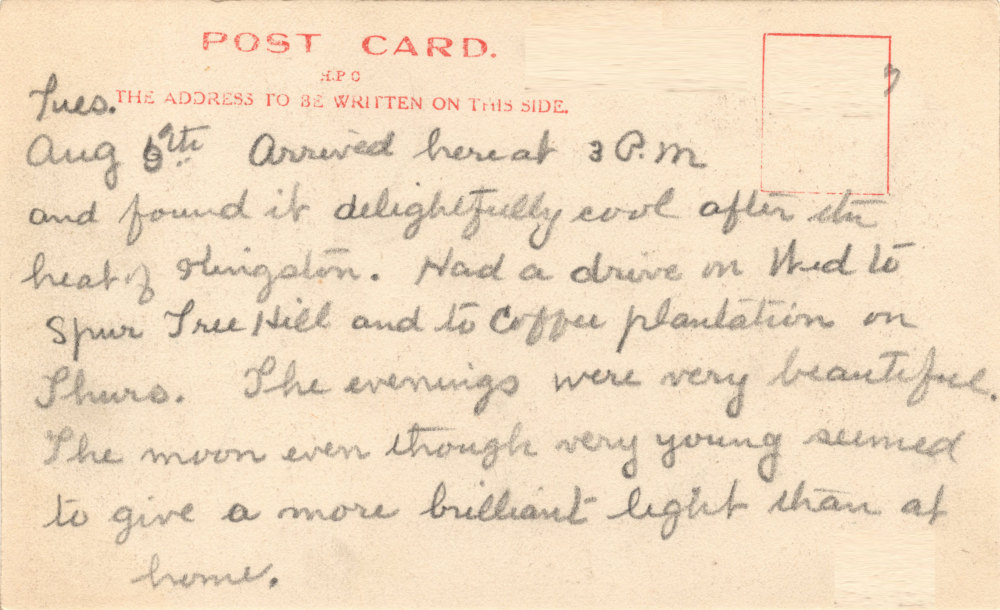 POST CARD.
H.P.C
THE ADDRESS TO BE WRITTEN ON THIS SIDE.
Tues.
Aug 9th Arrived here at 3 P.M
and found it delightfully cool after the
heat of Kingston. Had a drive on Wed to
Spur Tree Hill and to Coffee plantation on
Thurs. The evenings were very beautiful.
The moon even though very young seemed
to give a more brilliant light than at
home.